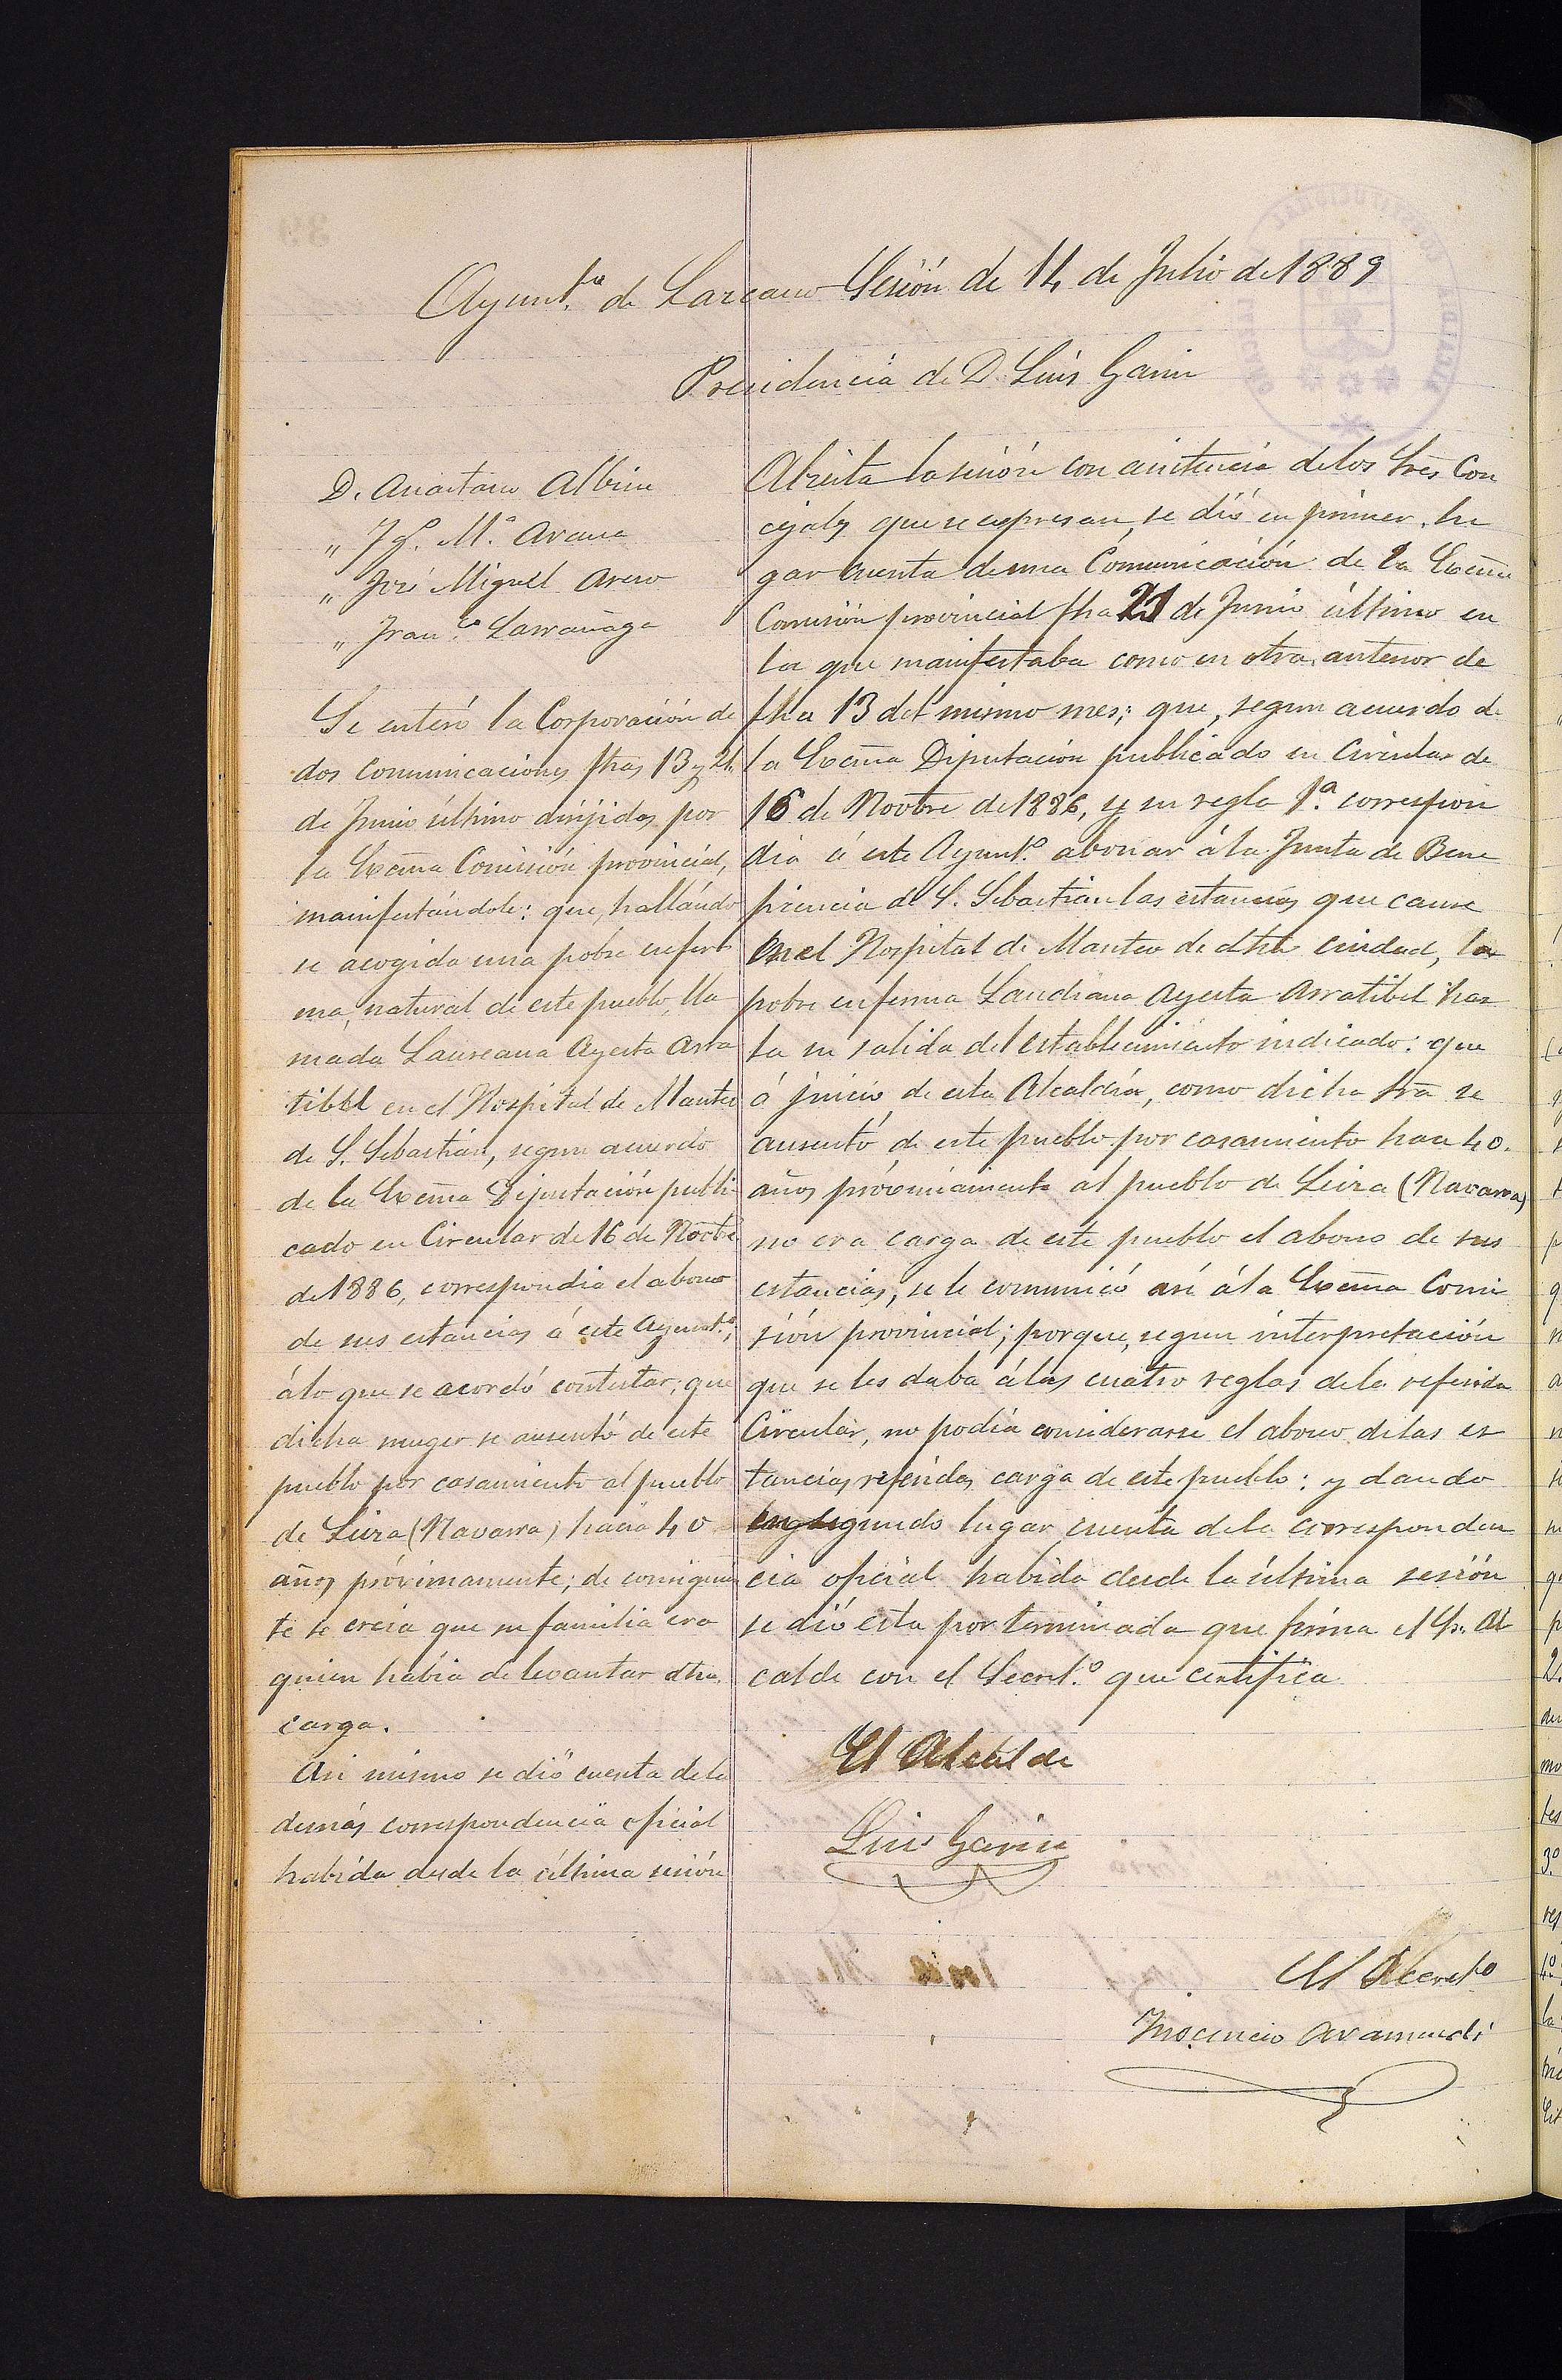 Ayunt.º de Lazcano Sesión de 14 de Julio de 1889
Presidencia de D. Luis Garin
D. Anastasio Albisu
„ J. Mª. Arana
„ José Miguel Areso
„ Fran.co Larrañaga
Se enteró la Corporación de
dos comunicaciones fhas 13 y 21
de Junio último dirijidas por
la Excma Comisión provincial,
manifestándole: que, hallándo
se acogida una pobre enfer
ma, natural de este pueblo, lla
mada Laureana Ayesta Arra
tibel en el Hospital de Manteo
de S. Sebastián, segun acuerdo
de la Excma Diputación publi
cado en Circular de 16 de Novbre
de 1886, correspondia el abono
de sus estancias á este Ayunt.º;
á lo que se acordó contestar; que
dicha muger se ausentó de este
pueblo por casamiento al pueblo
de Leiza (Navarra) hacia 40
años próximamente; de consiguien
te se creia que su familia era
quien habia de levantar dha
carga.
Asi mismo se dió cuenta de la
demás correspondencia oficial
habida desde la última sesión
Abierta la sesión con asistencia de los Sres Con
cejales que se espresan, se dió en primer lu
gar cuenta de una Comunicación de la Excma
Comisión provincial fha 21 de Junio último en
la que manifestaba como en otra anterior de
fha 13 del mismo mes; que, segun acuerdo de
la Excma Diputación publicado en Circular de
16 de Novbre de 1886, y su regla 1.ª correspon
dia á este Ayunt.º abonar á la Junta de Bene
ficencia de S. Sebastian las estancias que cause
en el Hospital de Manteo de dha ciudad, la
pobre enferma Laudiana Ayesta Arratibel has
ta su salida del establecimiento indicado: que
á juicio de esta Alcaldia, como dicha Sra se
ausentó de este pueblo por casamiento hace 40
años próximamente al pueblo de Leiza (Navarra)
no era carga de este pueblo el abono de sus
estancias, se le comunicó asi á la Excma Comi
sión provincial; porque, segun interpretación
que se les daba á las cuatro reglas de la referida
Circular, no podia considerarse el abono de las es
tancias referidas carga de este pueblo: y dando
en segundo lugar cuenta de la corresponden
cia oficial habida desde la última sesión
se dió esta por terminada que firma el Sr. Al
calde con el Secret.º que certifica
El Alcalde
Luis Garin
El Secret.º
Inocencio Aramendi